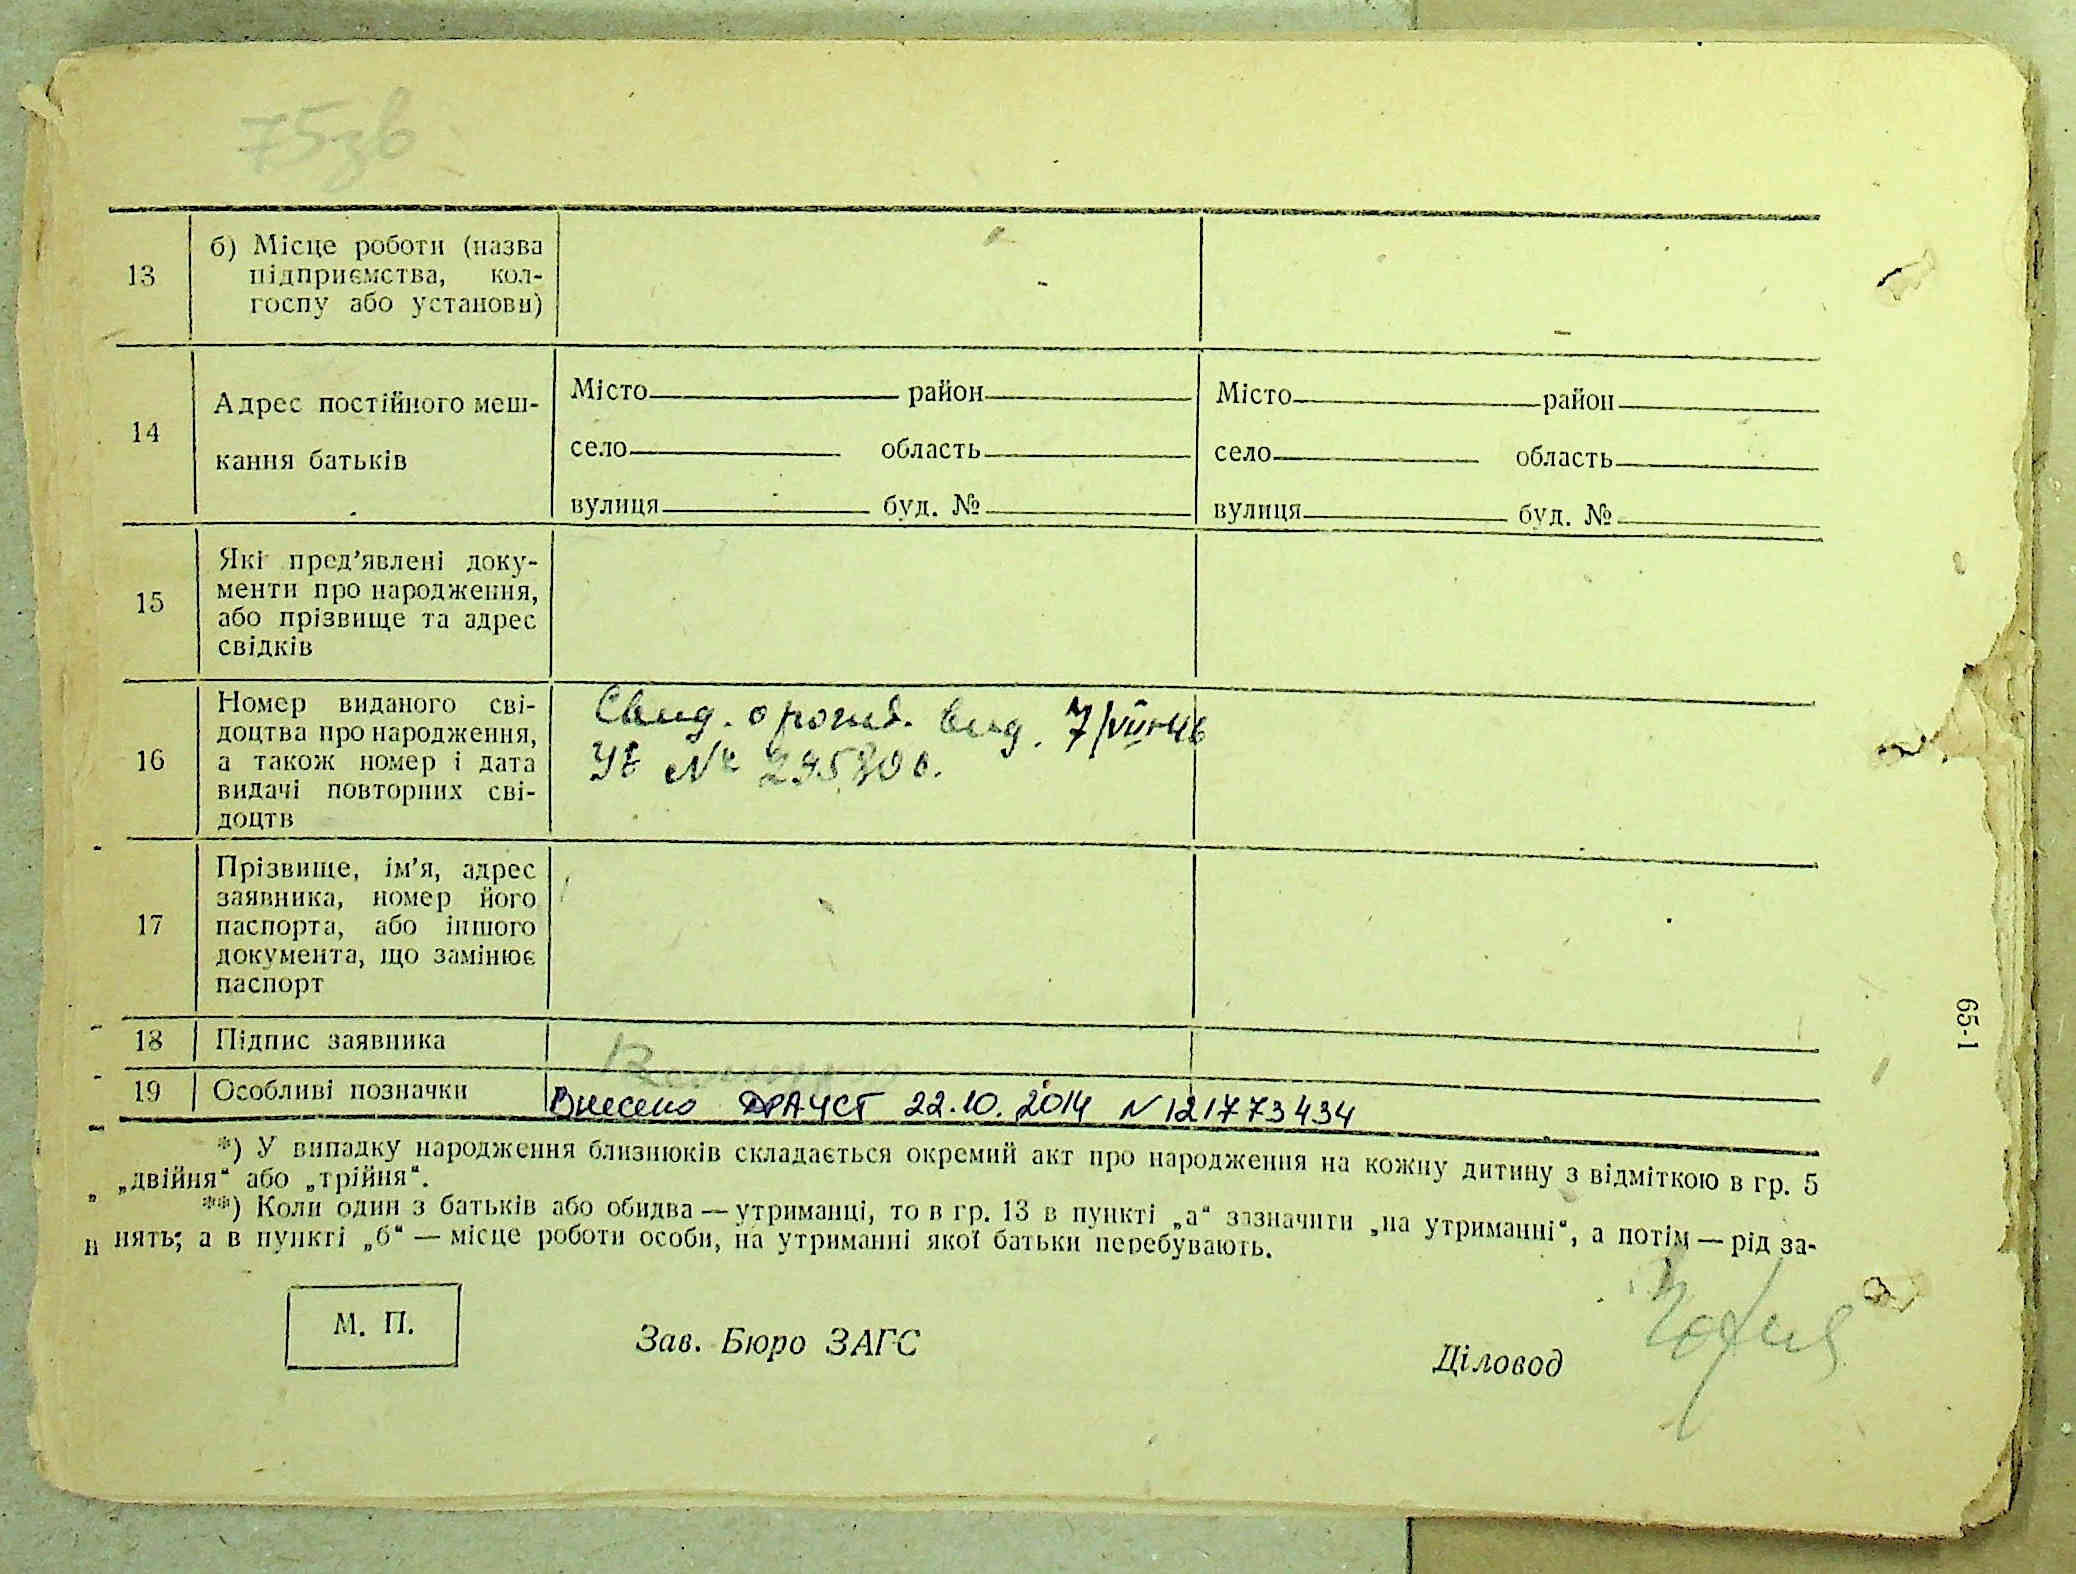 75зв
13
б) Місце роботи (назва
підприємства, кол-
госпу або установи)
14
Адрес постійного меш-
кання батьків
Місто район
село область
вулиця буд. №
Місто район
село область
вулиця буд. №
15
Які пред’явлені доку-
менти про народження,
або прізвище та адрес
свідків
16
Номер виданого сві-
доцтва про народження,
а також номер і дата
видачі повторних сві-
доцтв
Свид. о рожд. выд. 7/VII-46
№
17
Прізвище, ім’я, адрес
заявника, номер його
паспорта, або іншого
документа, що замінює
паспорт
18 Підпис заявника
19 Особливі позначки
Внесено ДРАЦСГ 22.10.2014 N 121773434
*) У випадку народження близнюків складається окремий акт про народження на кожну дитину з відміткою в гр. 5
„двійня“ або „трійня“.
**) Коли один з батьків або обидва — утриманці, то в гр. 13 в пункті „а“ зазначити „на утриманні“, а потім — рід за-
нять; а в пункті „б“ — місце роботи особи, на утриманні якої батьки перебувають.
М. П.
Зав. Бюро ЗАГС
Діловод
65-1